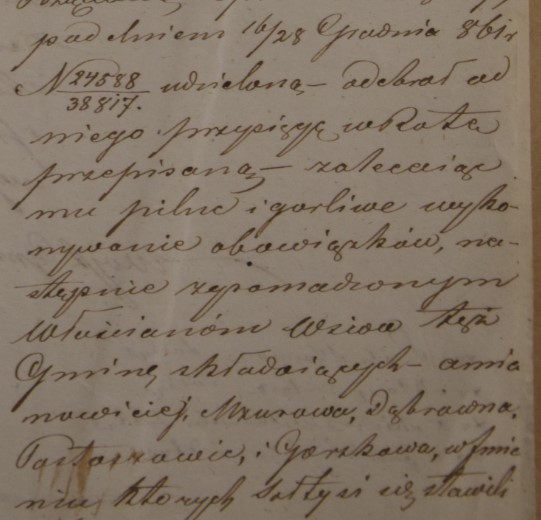 pod dniem 16/28 Grudnia 861 r
N 24588/38817. udzieloną — odebrał od
niego przysięgę w Rotę
przepisaną — zalecając
mu pilne i gorliwe wyko-
nywanie obowiązków, na-
stępnie zgromadzonym
Włościanom Wsiów też
Gminę składaiących — a mia
nowiciej, Mzurowa, Dąbrowna,
Postaszowic, i Gorzkowa, w Imie
niu których Sołtysi się stawili